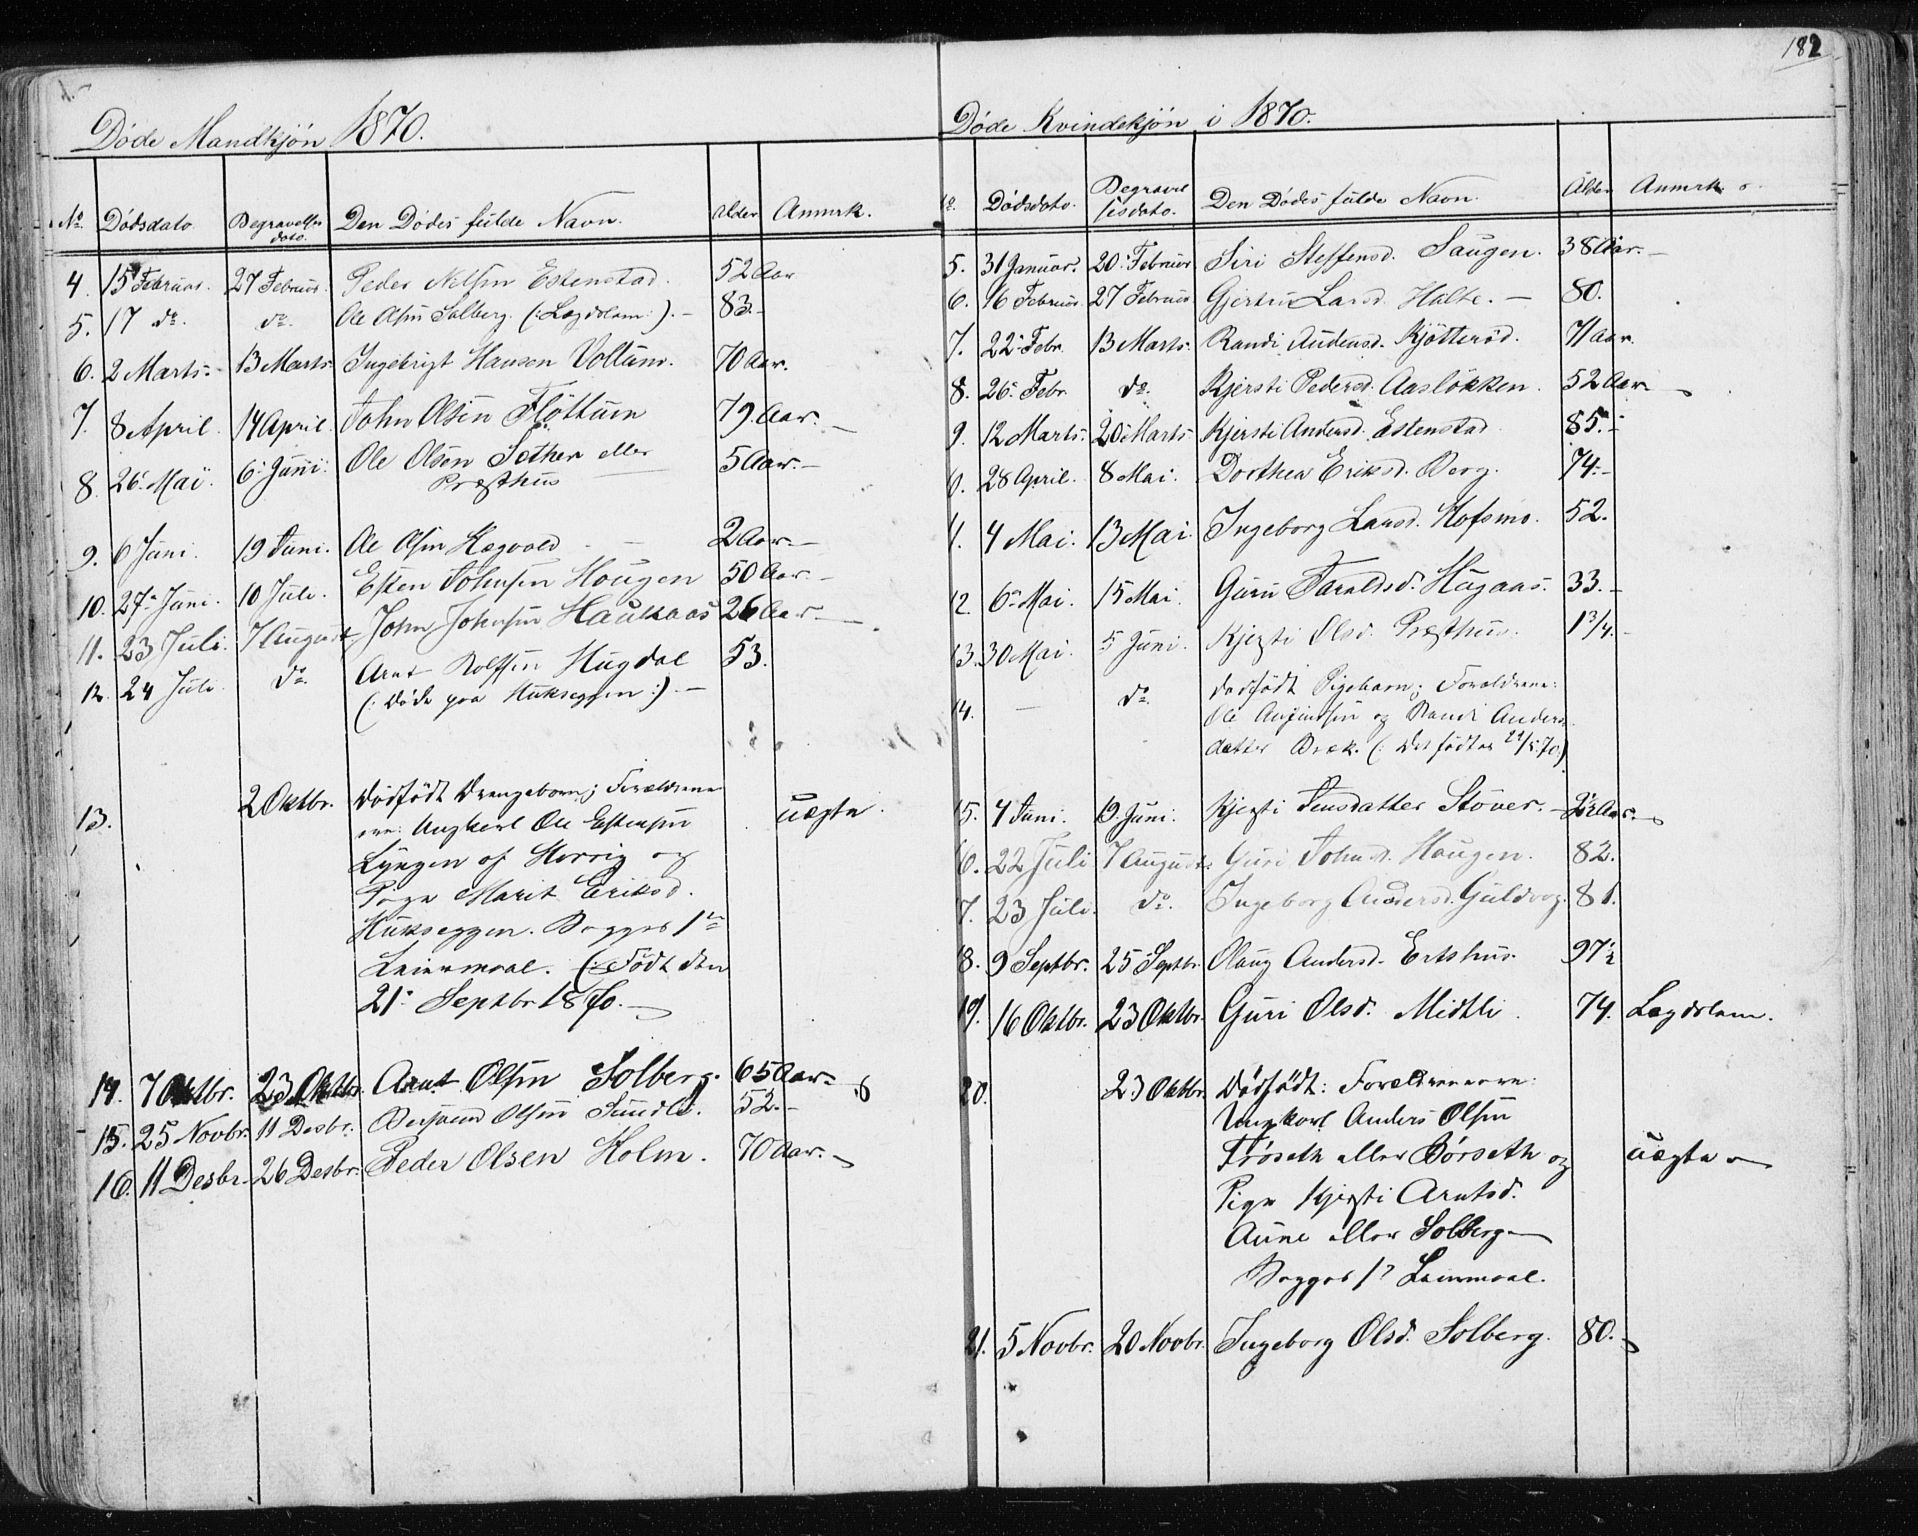 182
Døde Mandkjön 1870.
No Dødsdato Begravelsesdato. Den Dødes fulde Navn. Alder Anmrk.
4. 15 Februar. 27 Februar. Peder Nilsen Estenstad. 52 Aar
5. 17 do. do. Ole Olsen Solberg. (: Lægdslem :). — 83.-
6. 2 Marts. 13 Marts. Ingebrigt Hansen Voltum. 70 Aar.
7. 8 April. 14 April. John Olsen Fløttum 79. Aar. —
8. 26. Mai. 6. Juni. Ole Olsen Sether eller 5 Aar. —
Præsthus
9. 6 Juni. 19 Juni. Ole Olsen 2 Aar. —
10. 27. Juni. 10 Juli. Esten Johnsen Hougen 50 Aar. —
11. 23 Juli. 7 August John Johnsen Haukaas 26 Aar —
12. 24 Juli. do. Arnt Rolfsen Hugdal 53.
(: Døde paa Hukseggen :). —
13. 2 Oktbr. Dødfödt Drengebarn; Forældrene uægte.
ere: Ungkarl Ole Estensen
Lyngen af Horrig og
Pige Marit Eriksd.
Hukseggen. Begges 1ste
Leiermaal. (: Födt den
21. Septbr 1870. —
14. 7 Oktbr. 23 Oktbr. Arnt Olsen Solberg. 65 Aar.
15. 25 Novbr. 11 Desbr. Olsen Sundli. 52.-
16. 11 Desbr. 26 Desbr. Peder Olsen Holm. 70 Aar. —
Døde Kvindekjön i 1870.
Dødsdato. Begravelsesdato. Den Dødes fulde Navn. Alder Anmrk.
5. 31 Januar. 20. Februar Siri Steffensd. Saugen. 38 Aar. —
6. 16 Februar. 27 Februar Gjertru Larsd. Halte. — 80.
7. 22. Febr. 13 Marts. Randi Andersd. Kjötteröd. 71 Aar.
8. 26. Febr. do. Kjersti Pedersd. Aaslökken. 52 Aar —
9. 12 Marts. 20 Marts. Kjersti Andersd. Estenstad. 85.-
0. 28 April. 8 Mai. Dorthea Eriksd. Berg. 74.-
1. 4 Mai. 13 Mai. Ingeborg Larsd. Hofsmo. 52.
12. 6. Mai. 15 Mai. Guru Taraldsd. Hugaas. 33.-
13. 30 Mai. 5 Juni. Kjersti Olsd. Præsthus. 1 3/4.-
14. — do. Dødfödt Pigebarn; Forældrene:
Ole Amundsen og Randi Anders
datter Bræk. (: Det födt 24/5 70.)
15. 4 Juni. 19. Juni. Kjersti Jensdatter Støver. — Aar. —
16. 22 Juli 7 August Guri Johnsd. Haugen. 82.
7. 23 Juli. do. Ingeborg Andersd. Guldvog. 81.
18. 9 Septbr. 25 Septbr. Olaug Andersd. Ertshus. 97 1/2
19. 16 Oktbr. 23 Oktbr. Guri Olsd. Midtli. 74. Lægdslem.
20. 23 Oktbr. Dödfödt: Forældrene ere:
Ungkarl Anders Olsen
Frøseth eller Børseth og uægte —
Pige Kjersti Arntsd.
Aune eller Solberg —
Begges 1ste Leiermaal.
21. 5 Novbr. 20 Novbr. Ingeborg Olsd. Solberg. 80. —